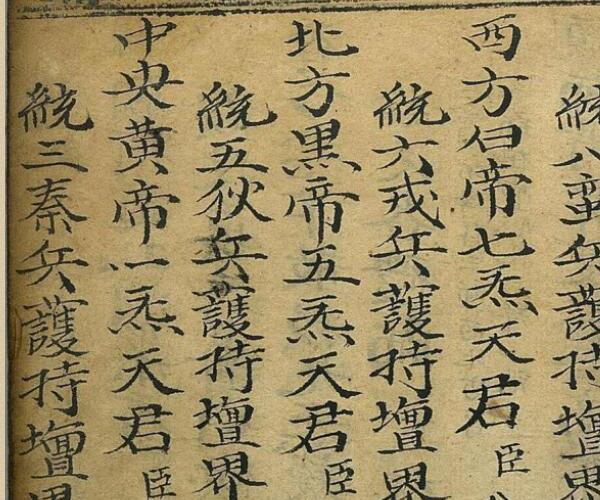 統八蠻兵護持壇界
西方白帝七炁天君 臣
統六戎兵護持壇界
北方黑帝五炁天君 臣
統五狄兵護持壇界
中央黃帝一炁天君 臣
統三秦兵護持壇界